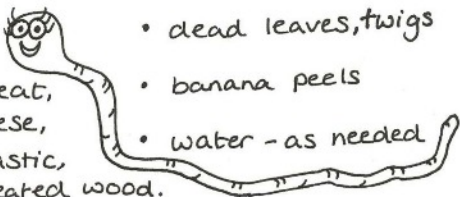 • dead leaves, twigs
• banana peels
• water - as needed
eat,
ese,
astic,
eated wood.